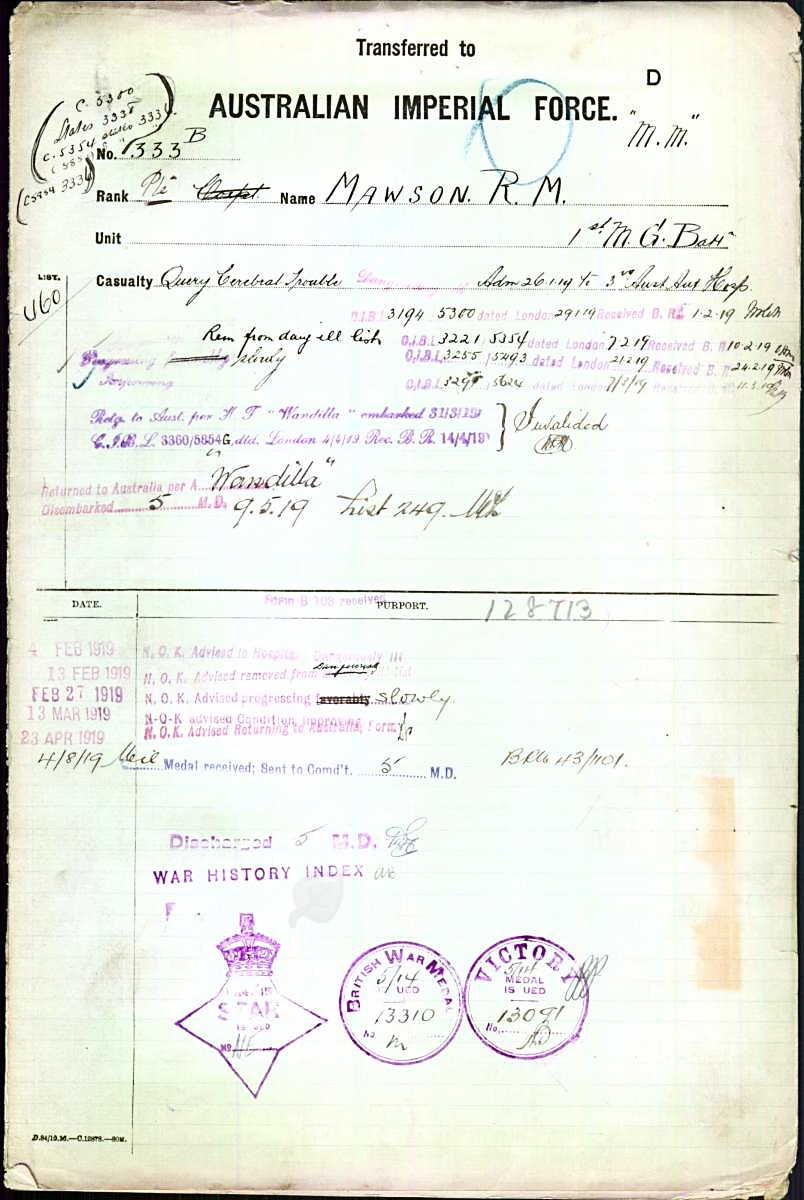 Transferred to
D
AUSTRALIAN IMPERIAL FORCE.
"M.M."
C. 5300
States 3335
C. 5354 States 3334.
(C5854 3336)
No. 1333 B
Rank Pte Name MAWSON. R. M.
Unit 1st M. G. Batt
LIST.
460
Casualty Query Cerebral Trouble Adm 26.1.19 to 3rd Aust Aux Hosp.
C.I.B.L 3194 5300 dated London 29119 Received B. R. 1-2-19
Rem from dang ill list C.I.B.L. 3221/5354 dated London 7 2 19 Received B. R. 10-2-19
Progressing slowly C.I.B.L. 3255/5493 dated London 21219 Received B. R. 24.2.19
Improving C.I.B.L 3295 5624 dated London 7/3/19 Received B. R. 11.3.19
Retg. to Aust. per H T "Wandilla" embarked 31/3/19
C.I.B.L. 3360/5854G, dtd. London 4/4/19 Rec. B. R. 14/4/19
Invalided
Returned to Australia per A. "Wandilla"
Disembarked 5 M.D. 9.5.19 List 249.
Form B 103 received
DATE. PURPORT.
128713
4 FEB 1919 N. O. K. Advised to Hospital Dangerously Ill
13 FEB 1919 N. O. K. Advised removed from Dangerously Ill List
FEB 27 1919 N. O. K. Advised progressing favorably slowly.
13 MAR 1919 N-O-K advised Condition Improving
23 APR 1919 N. O. K. Advised Returning to Australia, Form
4/8/19 Medal received; Sent to Comd't. 5 M.D. BRM 43/1101.
Discharged 5 M.D.
WAR HISTORY INDEX
STAR
ISSUED
No
BRITISH WAR MEDAL
5/14
ISSUED
13310
No.
VICTORY
5/14
MEDAL
ISSUED
13091
No.
D.84/10.16.—C.12878.—80M.